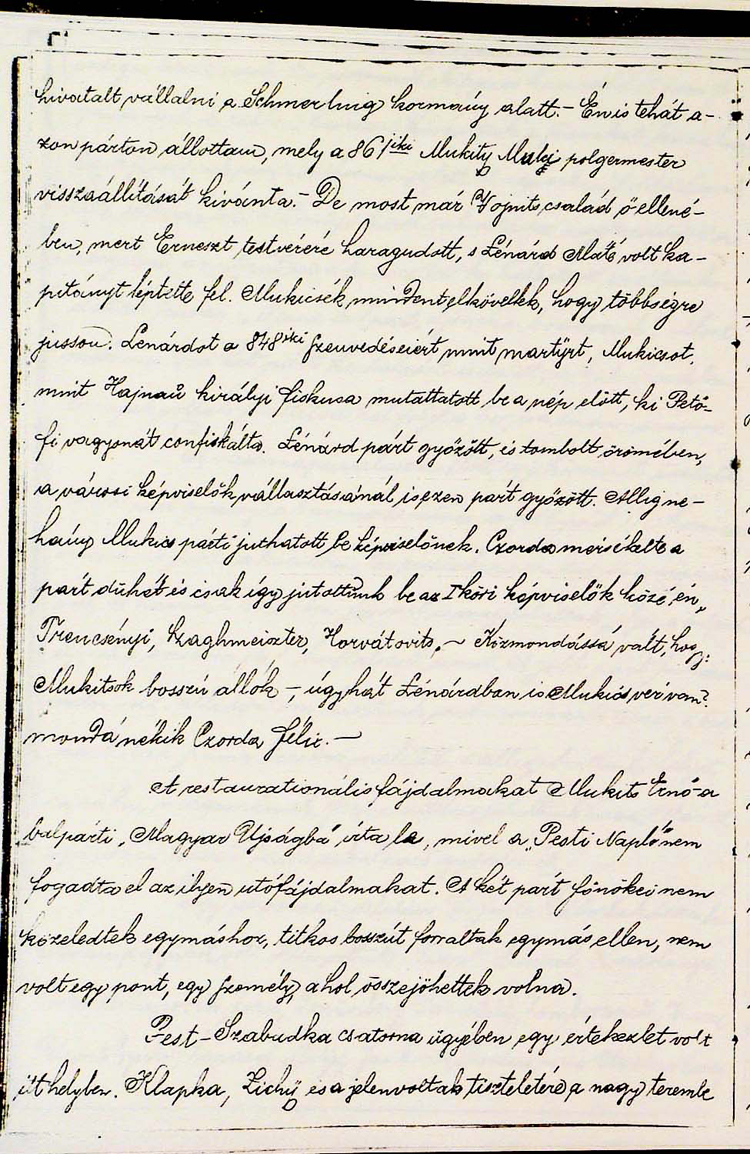 hivatalt vállalni a Schmerling kormány alatt. – Én is tehát a-
zon párton állottam, mely a 861iki Mukity Muki polgermester
visszaállitását kivánta. – De most már Vojnits család ő ellené-
ben, mert Erneszt testvérére haragudott, s Lénárd Máté volt ka-
pitányt léptette fel. Mukicsék mindent elkövettek, hogy többségre
jusson. Lénárdot a 848iki szenvedéseiért mint martÿrt, Mukicsot,
mint Hajnaů királyi fiskusa mutattatott be a nép előtt, ki Pető-
fi vagyonát confiskálta. Lénárd párt győzött, és tombolt örömében,
a városi képviselők vállasztásánál is ezen párt győzött. Allig ne-
hány Mukics párti juthatott be képviselőnek. Czorda mérsékelte a
párt dühét és csak így jutottunk be az I köri képviselők közé én,
Trencsényi, Szaghmeiszter, Horvátovits. – Közmondássá vált, hogy:
Mukitsok bosszú állók –, úgy hát Lénárdban is Mukics vér van?
mondá nékik Czorda félix. –
A restaurationális fájdalmakat Mukits Ernő a
balpárti „Magyar Ujságba" írta le, mivel a „Pesti Napló" nem
fogadta el az ilyen utófájdalmakat. A két párt főnökei nem
közeledtek egymáshoz, titkos boszút forraltak egymás ellen, nem
volt egy pont, egy személy, ahol összejöhettek volna.
Pest–Szabudka csatorna ügyében egy értekezlet volt
itt helyben. Klapka, Zichÿ és a jelenvoltak tiszteletére a nagy teremben